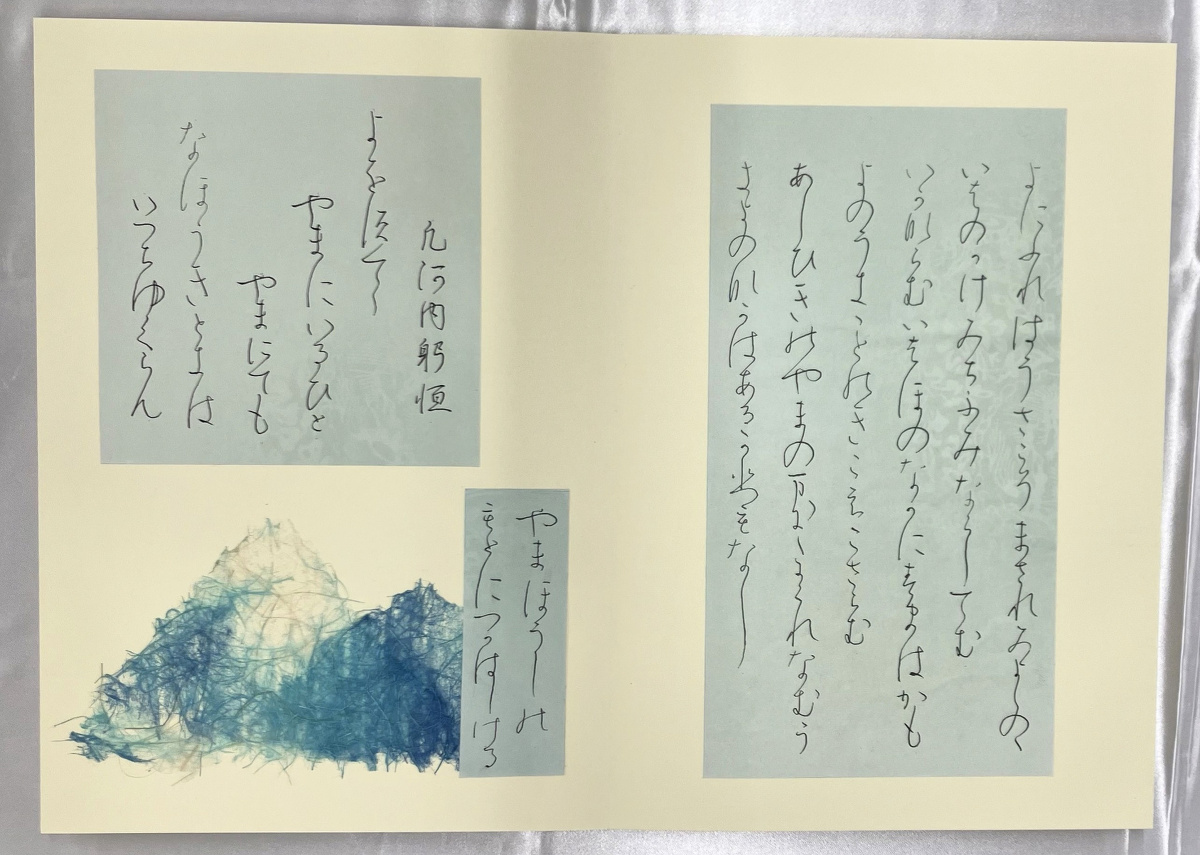 よにふれはうさこそまされみよしのゝ
いはのかけみちふみならしてむ
いかならむいはほのなかにすまはかも
よのうきことのきこえこさらむ
あしひきのやまのまにまにかくれなむう
きよのなかはあるかひもなし
やまほうしの
もとにつかはしける
凡河内躬恒
よをすてゝ
やまにいるひと
やまにても
なほうきときは
いつちゆくらん